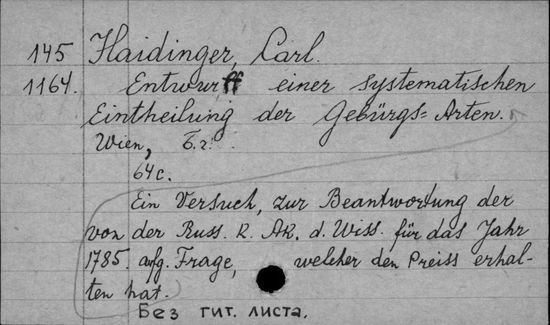 145 Haidinger, Carl.
1164. Entwurff einer systematischen
Eintheilung der Gebürgs=Arten.
Wien, б.г.
64 с.
Ein Versuch, zur Beantwortung der
von der Russ. K. Ak. d. Wiss. für das Jahr
1785. afg. Frage, welcher den Preiss erhal-
ten hat.
Без тит. листа.